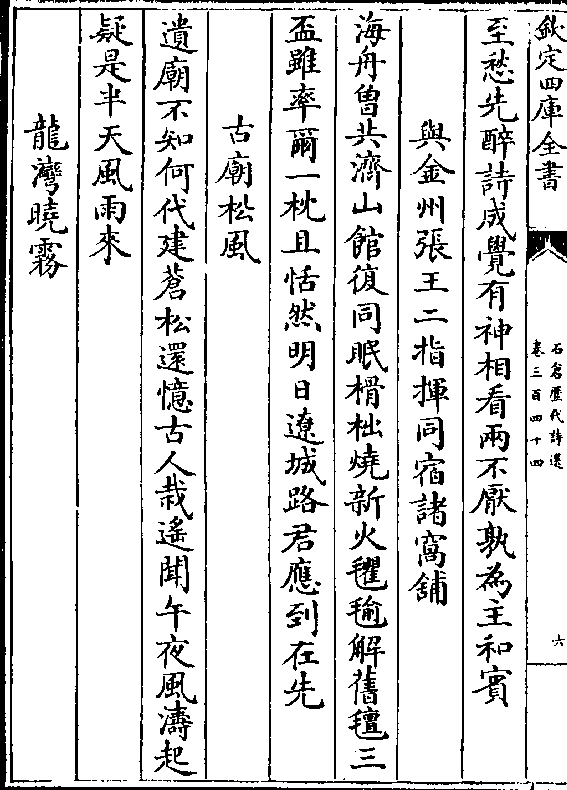 欽定四庫全書
石倉歷代詩選
卷三百四十四
六
至愁先醉詩成覺有神相看兩不厭孰為主和賓
與金州張王二指揮同宿諸窩舖
海舟曽共濟山館復同眠榾柮燒新火氍毹解舊氊三
盃雖率爾一枕且恬然明日遼城路君應到在先
古廟松風
遺廟不知何代建蒼松還憶古人栽遙聞午夜風濤起
疑是半天風雨來
龍灣曉霧